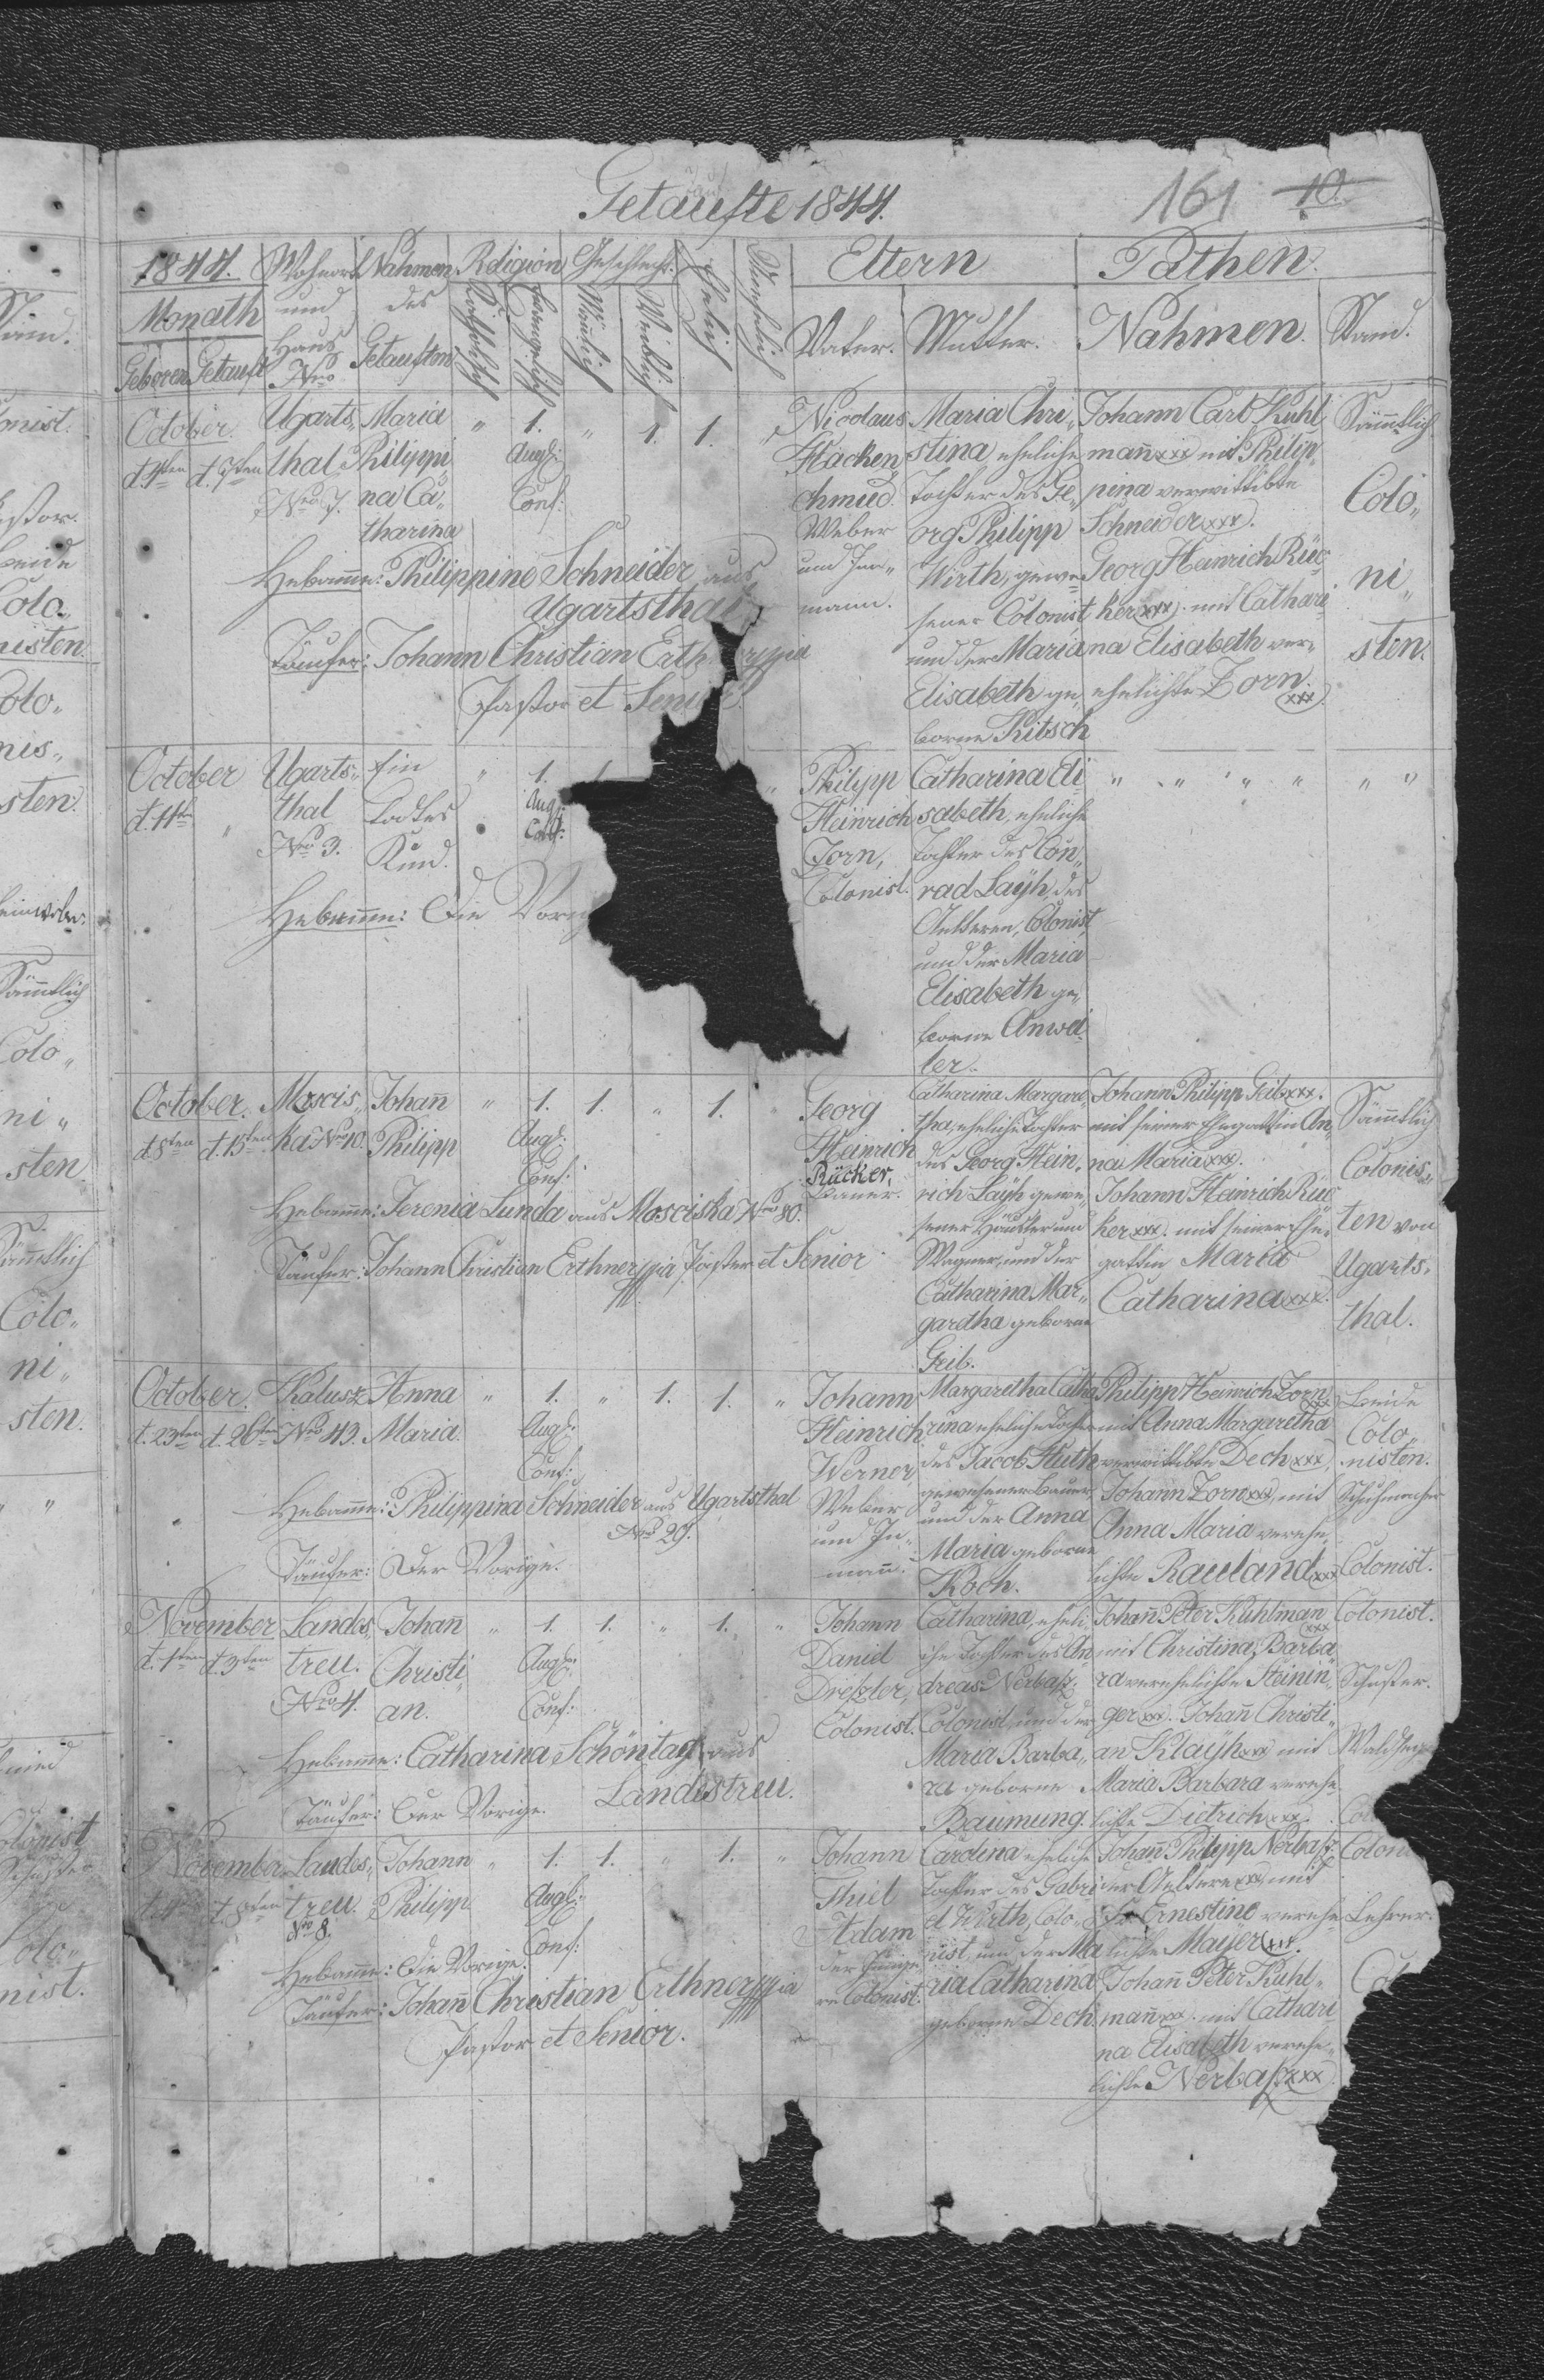 Getaufte 1844.
161 10.
1844. Wohnort Nahmen Religion Geschlecht. Ehelich Unehelich Eltern Pathen.
Monath und des Katholisch Evangelisch Mänlich Weiblich Vater. Mutter. Nahmen. Stand.
Geboren Getauft Haus Nro Getauften
October. d. 7ten
Ugarts„
thal
Nro 7.
Maria
Philippi
na Ca„
tharina
" 1. " 1. 1. "
Augs:
Conf:
Nicolaus
Hacken
chmied
Weber
und Inn„
mann.
Maria Chri„
stina, eheliche
Tochter des Ge„
org Philipp
Wirth, gewe„
sener Colonist
und der Maria
Elisabeth ge„
borne Ritsch
Johann Carl Kuhl
mann xxx mit Philip
pina verwittibte
Schneider xxx.
Georg Heinrich Rüc
ker xxx. mit Cathari
na Elisabeth ver„
ehelichte Zorn.
xxx
Sämmtlich
Colo„
ni„
sten.
Hebamme: Philippine Schneider aus
Ugartsthal
Täufer: Johann Christian Erth
Pastor et Senior
October
d. 11ten "
Ugarts„
thal
Nro 3.
Ein
Todtes
Kind.
" 1. 1
Augs:
Conf:
Philipp
Heinrich
Zorn,
Colonist.
Catharina Eli
sabeth, eheliche
Tochter des Con„
rad Layh, des
Aelteren, Colonist
und der Maria
Elisabeth ge„
borne Anwei
ler.
" " " " " "
Hebamme: Die Vorig
October.
d. 8ten d. 13ten
Moscis„
ka Nro 10.
Johañ
Philipp
" 1. 1. " 1. "
Augs:
Conf:
Georg
Heinrich
Rücker,
Bauer.
Catharina Margare„
tha, eheliche Tochter
des Georg Hein„
rich Layh gewe„
sener Häusler und
Wagner, und der
Catharina Mar„
garetha geborne
Geib.
Johann Philipp Geib xxx.
mit seiner Ehegattin An„
na Maria xxx.
Johann Heinrich Rüc
ker xxx. mit seiner Ehe„
gattin Maria
Catharina xxx.
Sämmtlich
Colonis„
ten von
Ugarts„
thal.
Hebamme: Jerenia Lunda aus Mosciska Nro 80.
Täufer: Johann Christian Erthner ppia Pastor et Senior
October.
d. 23ten d. 26ten
Kalusz
Nro 43.
Anna
Maria.
" 1. " 1. 1. "
Augs:
Conf:
Johann
Heinrich
Werner,
Weber
und In„
mañ.
Margaretha Catha
rina eheliche Tochter
des Jacob Huth
gewesener Bauer
und der Anna
Maria geborne
Koch.
Philipp Heinrich Zorn
xxx
mit Anna Margaretha
verwittibte Dech xxx,
Johann Zorn xxx, mit
Anna Maria verehe„
lichte Rauland xxx
Beide
Colo„
nisten.
Schuhmacher
Colonist.
Hebamme: Philippina Schneider aus Ugartsthal
Nro 29.
Täufer: Der Vorige.
November
d. 1ten d. 3ten
Landes„
treu.
Nro 4.
Johañ
Christi„
an.
" 1. 1. " 1. "
Augs:
Conf:
Johann
Daniel
Dreßler,
Colonist.
Catharina, eheli„
che Tochter des An„
dreas Nerbaß,
Colonist, und der
Maria Barba„
ra geborne
Baumung.
Johañ Peter Kuhlman
xxx
mit Christina Barba„
ra verehelichte Heinin„
ger xxx. Johañ Christi„
an Klayh xxx mit
Maria Barbara verehe„
lichte Dietrich xxx.
Colonist.
Schuster.
Hebamme: Catharina Schöntag aus
Landestreu.
Täufer: Der Vorige.
November
d. 8ten
Landes„
treu.
Nro 8.
Johann
Philipp
" 1. 1. " 1. "
Augs:
Conf:
Johann
Thiel
Adam
der Jünge„
re Colonist.
Carolina eheliche
Tochter des Gabri
el Wirth, Colo„
nist, und der Ma
ria Catharina
geborne Dech.
Johañ Philipp Nerbaß
der Aeltere xxx, mit
Ernestine verehe„
lichte Mayer xxx.
Johañ Peter Kuhl„
mañ xxx. mit Cathari
na Elisabeth verehe„
lichte Nerbaß xxx.
Colon
Lehrer.
Col
Hebamme: Die Vorige.
Täufer: Johañ Christian Erthner ppia
Pastor et Senior.